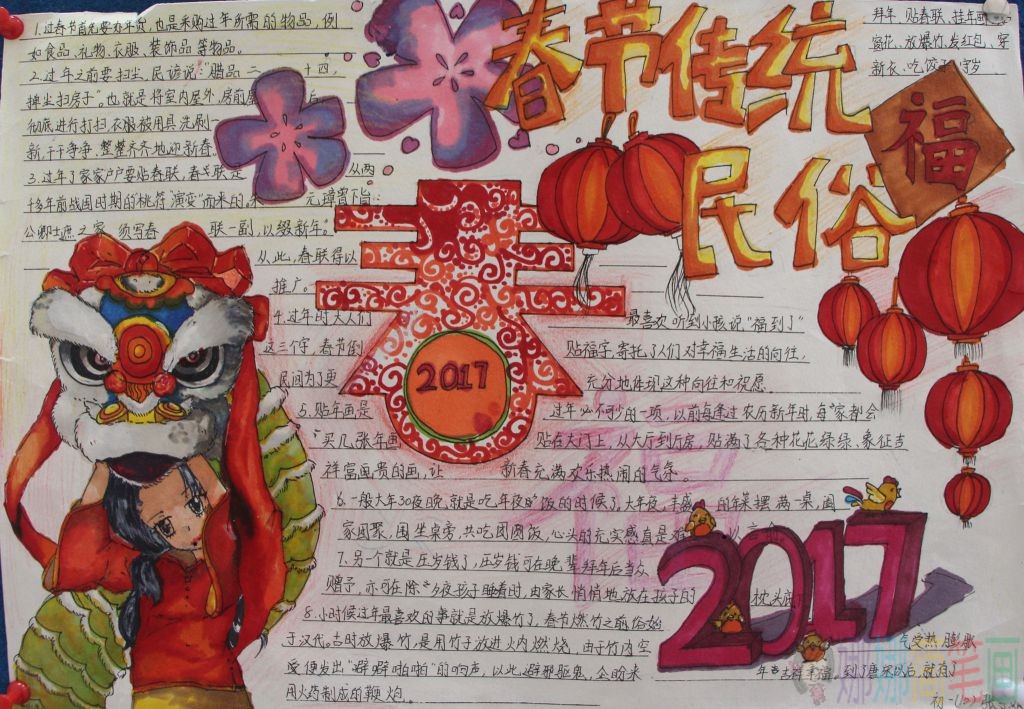 春节传统
民俗
福
春
2017
2017
1.过春节首先要办年货,也是采购过年所需的物品,例
如食品、礼物、衣服、装饰品等物品。
2.过年之前要扫尘,民谚说:腊品二 十四,
掸尘扫房子"。也就是将室内屋外,房前屋 后
彻底进行打扫,衣服被用具洗刷一
新,干干争争、整整齐齐地迎新春。
3.过年了家家户户要贴春联,春联是 从两
十多年前战国时期的桃符演变而来的, 元璋曾下旨:
公卿士庶之家 须写春 联一副,以缀新年。"
从此,春联得以
推广。
4.过年时大人们 最喜欢听到小孩说"福到了"
这三个字,春节倒 贴福字,寄托了人们对幸福生活的向往,
民间为了更 充分地体现这种向往和祝愿
5.贴年画是 过年必不可少的一项,以前每逢过农历新年时,每家都会
买几张年画 贴在大门上,从大厅到厅房,贴满了各种花花绿绿、象征吉
祥富贵的画,让 新春充满欢乐热闹的气氛。
6.一般大年30夜晚,就是吃年夜饭的时候了,大年夜,丰盛 的年菜摆满一桌,阖
家团聚,围坐桌旁,共吃团圆饭,心头的充实感真是难
7.另一个就是压岁钱了,压岁钱可在晚辈拜年后当众
赠予,亦可在除夕夜孩子睡着时,由家长悄悄地放在孩子的 枕头底下
8.小时候过年最喜欢的事就是放爆竹了,春节燃竹之前俗始
于汉代。古时放爆竹,是用竹子放进火内燃烧,由于竹内空 气受热膨胀
受便发出"噼噼啪啪"的响声,以此避邪驱鬼,企盼来 年吉祥幸福。到了唐宋以后,就有了
用火药制成的鞭炮。
拜年、贴春联、挂年画
窗花、放爆竹、发红包、穿
新衣、吃饺子、守岁
初一(10)张
娜娜简笔画